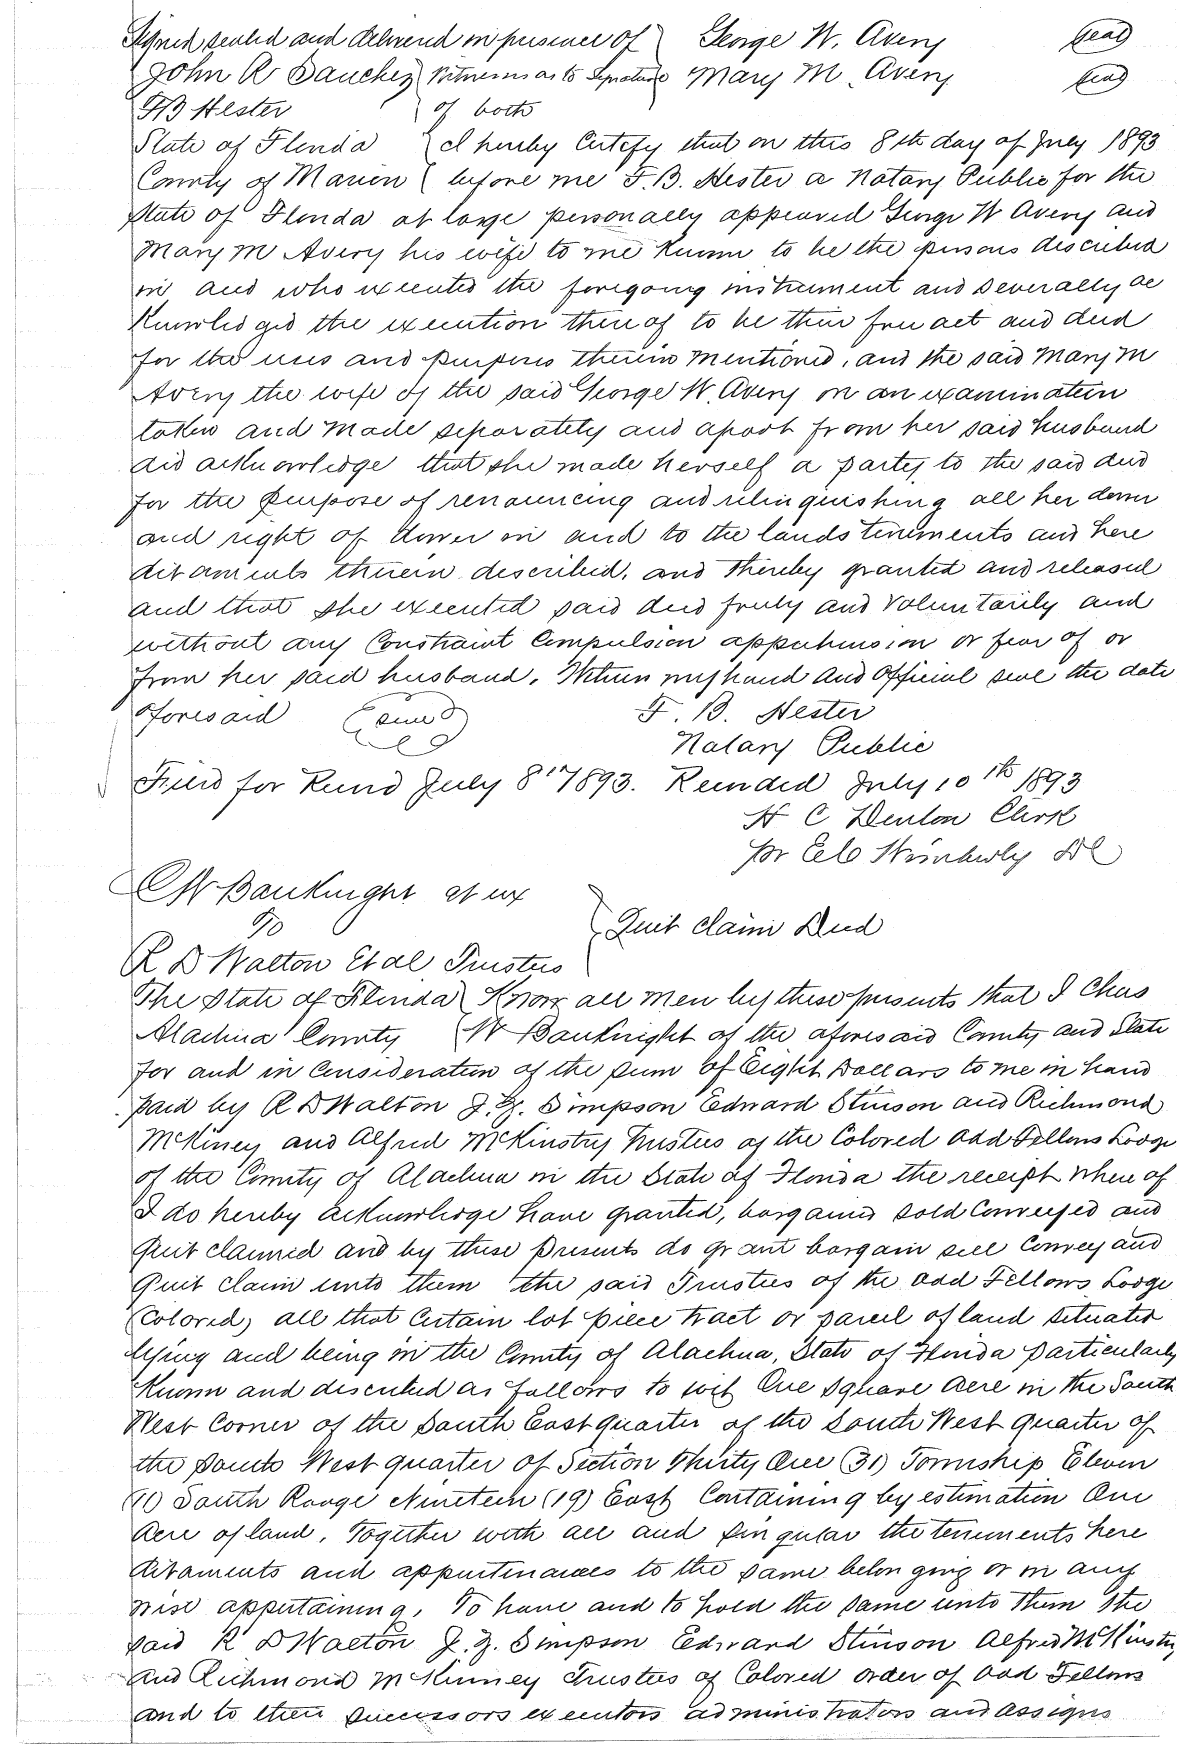 Signed sealed and delivered in presence of } George W. Avery (seal)
John R Sanchez } Witnesses as to Signature } Mary M. Avery (seal)
F B Hester } of both
State of Florida } I hereby Certify that on this 8th day of July 1893
County of Marion } before me F. B. Hester a Notary Public for the
State of Florida at large personally appeared George W Avery and
Mary M Avery his wife to me Known to be the persons described
in and who executed the foregoing instrument and severally ac
Knowledged the execution thereof to be their free act and deed
for the uses and purposes therein mentioned, and the said Mary M
Avery the wife of the said George W. Avery on an examination
taken and made separately and apart from her said husband
did acknowledge that she made herself a party to the said deed
for the purpose of renouncing and relinquishing all her dower
and right of dower in and to the lands tenements and here
ditaments therein described, and thereby granted and released
and that she executed said deed freely and voluntarily and
without any Constraint Compulsion apprehension or fear of or
from her said husband. Witness my hand and Official seal the date
aforesaid (seal) F. B. Hester
Notary Public
Filed for Record July 8th 1893. Recorded July 10th 1893
H C Denton Clerk
pr E C Wimberly DC
C W Bauknight et ux
To } Quit claim Deed
R D Walton Et al Trustees
The State of Florida } Know all men by these presents that I Chas
Alachua County } W Bauknight of the aforesaid County and State
for and in Consideration of the sum of Eight Dollars to me in hand
paid by R D Walton J. Z. Simpson Edward Stinson and Richmond
McKiney and Alfred McKinstry Trustees of the Colored Odd Fellows Lodge
of the County of Alachua in the State of Florida the receipt where of
I do hereby acknowledge have granted, bargained sold Conveyed and
Quit claimed and by these presents do grant bargain sell Convey and
Quit Claim unto them the said Trustees of the odd Fellows Lodge
(Colored) all that Certain lot piece tract or parcel of land situated
lying and being in the County of Alachua, State of Florida particularly
Known and described as follows to wit One square Acre in the South
West Corner of the South East quarter of the South West quarter of
the South West quarter of Section Thirty One (31) Township Eleven
(11) South Range Nineteen (19) East Containing by estimation One
Acre of land. Together with all and singular the tenements here
ditaments and appurtenances to the same belonging or in any
wise appertaining. To have and to hold the same unto them the
said R D Walton J. Z. Simpson Edward Stinson Alfred McKinstry
and Richmond McKinney Trustees of Colored order of Odd Fellows
and to their successors executors administrators and assigns